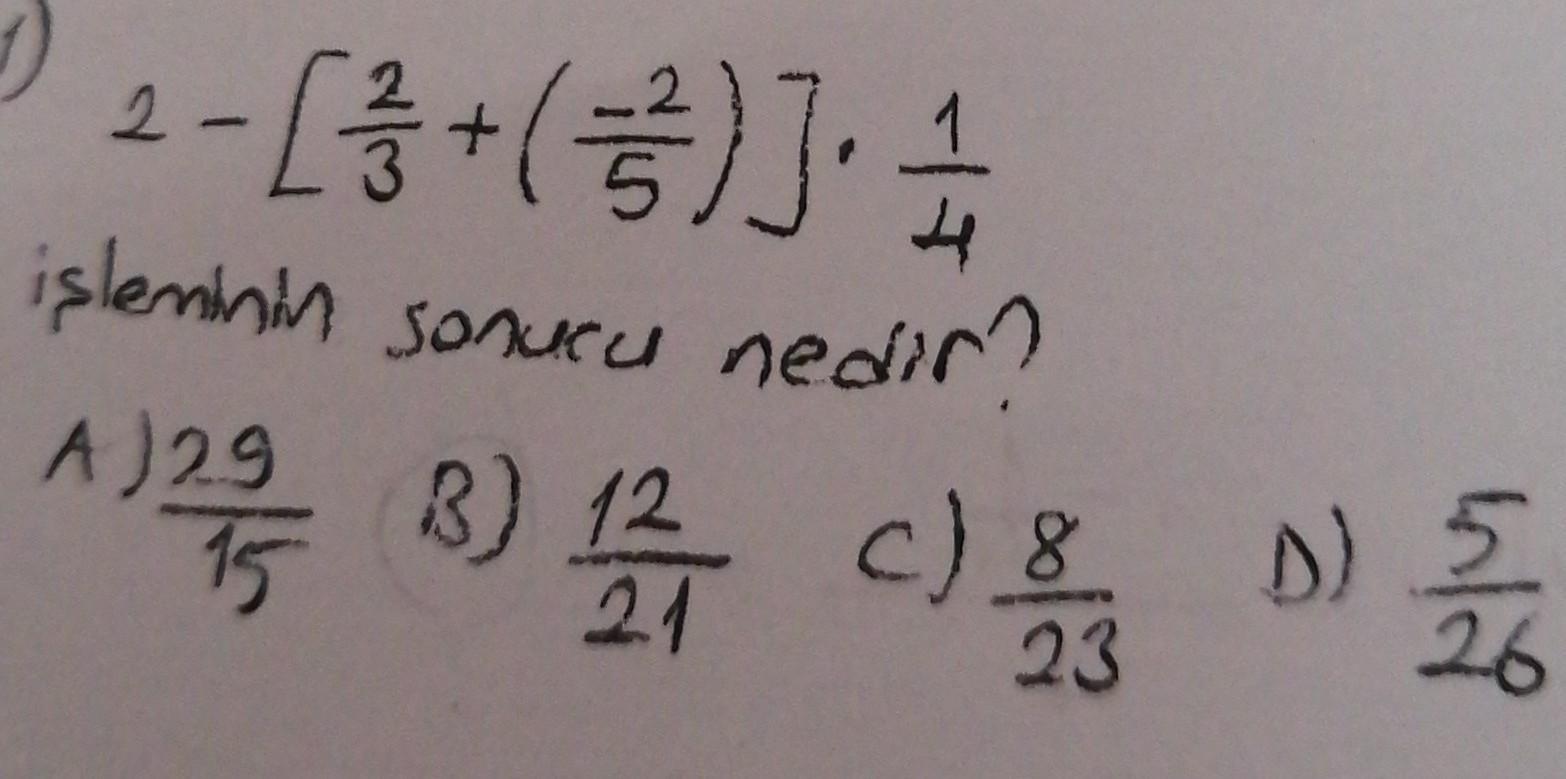 1)
2 - [2/3 + (-2/5)] · 1/4
işleminin sonucu nedir?
A) 29/15 B) 12/21 C) 8/23 D) 5/26